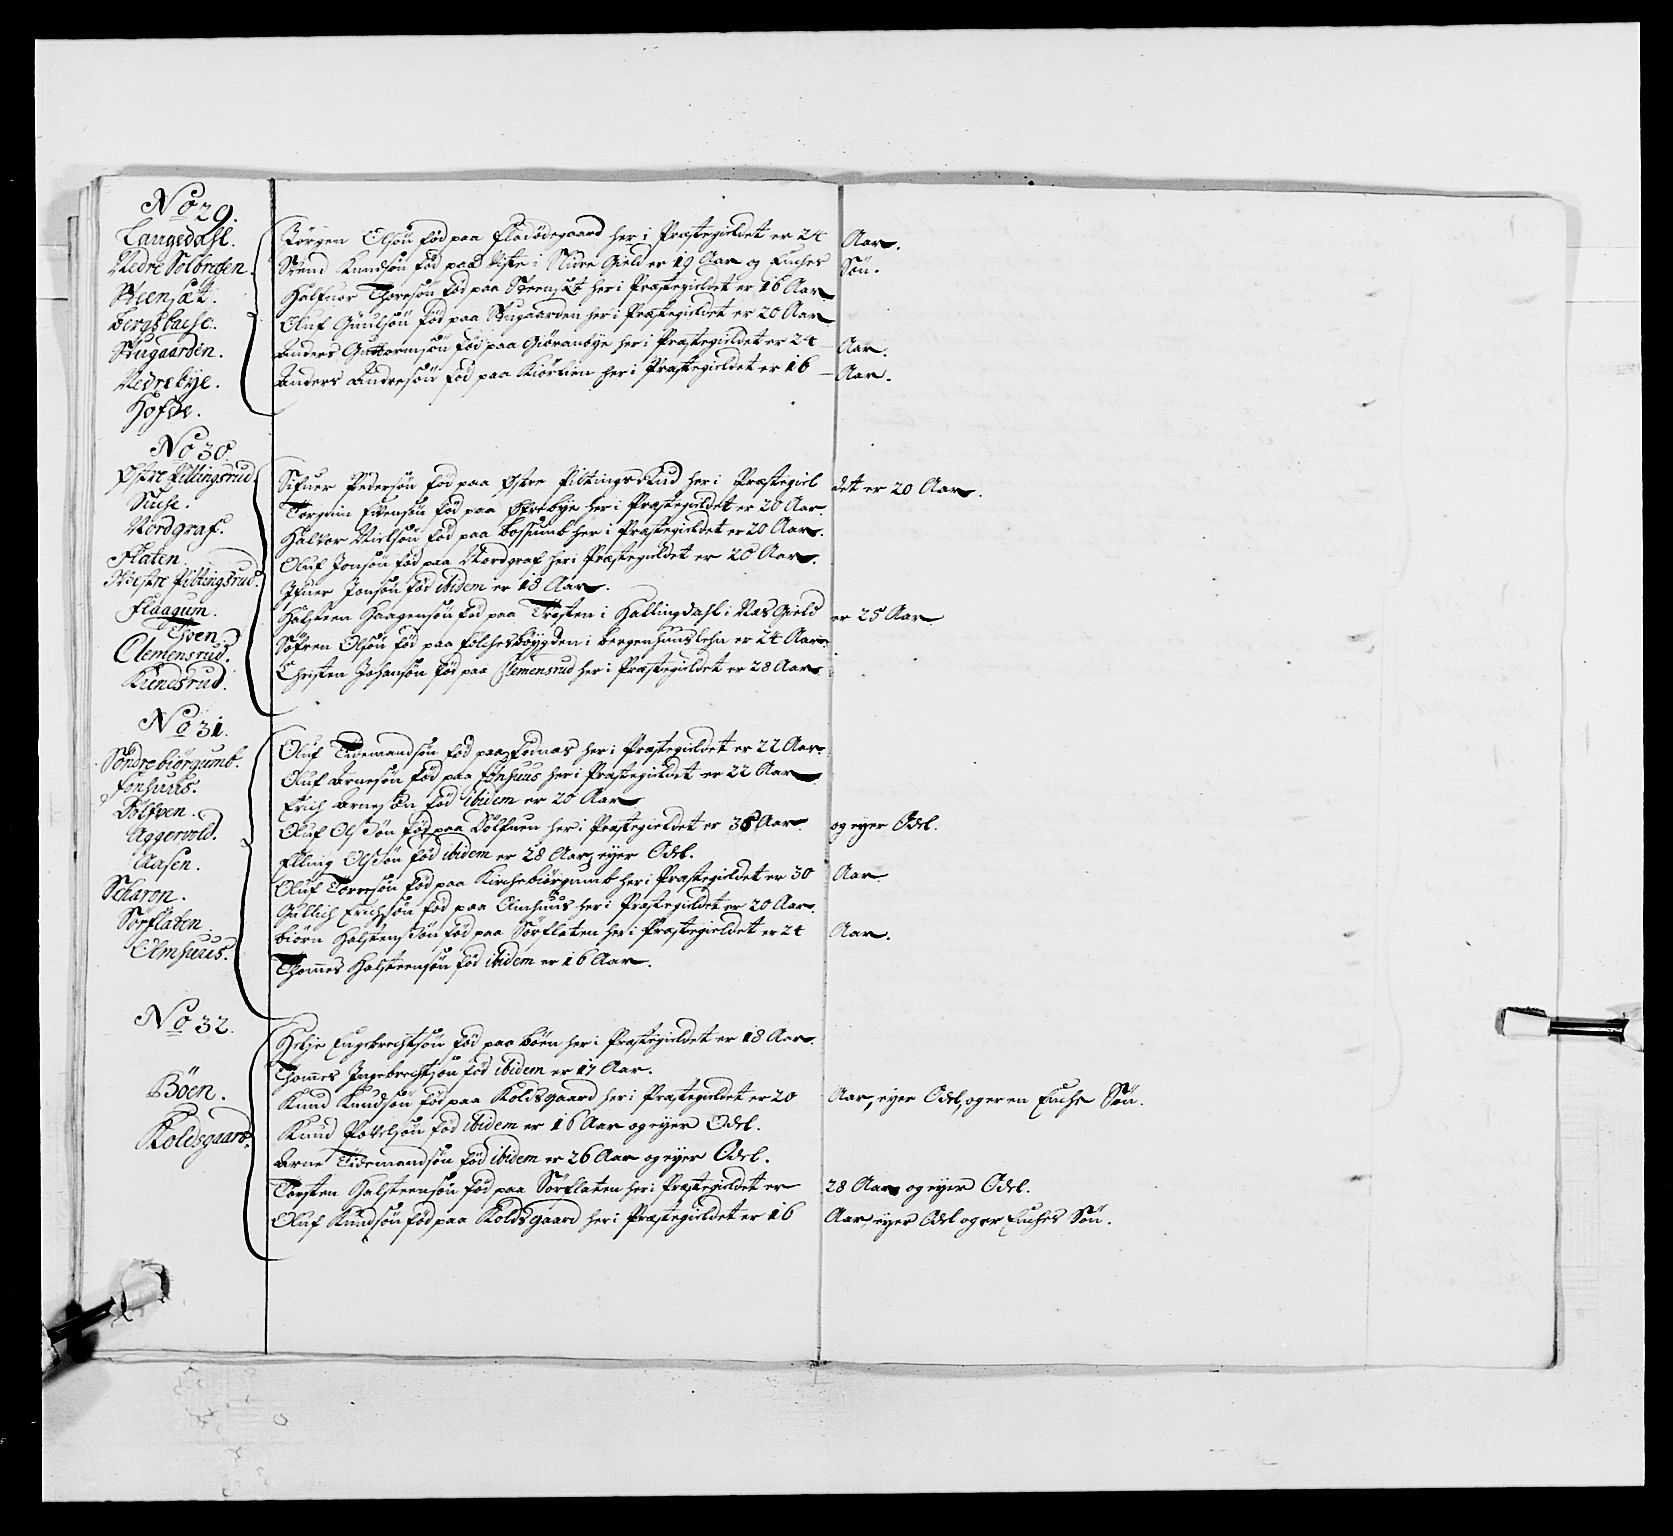 No 29.
Langedahl.
Nedre Solbresen.
Steensæt.
Bergsbache.
Stugaarden.
Nedrebÿe.
Hofde.
Jörgen Olsön föd paa Fladödegaard her i Præstegieldet er 24 Aar.
Svend Knudsön föd paa Viste i Slidre Gield er 19 Aar og Enches Sön.
Halfuor Thoresön föd paa Steensæt her i Præstegieldet er 16 Aar
Oluf Guulsön föd paa Stugaarden her i Præstegieldet er 20 Aar
Anders Guttormsön föd paa Giöranbÿe her i Præstegieldet er 24 Aar.
Anders Andresön föd paa her i Præstegieldet er 16 Aar.
No 30.
Östre Piltingsrud.
Nordgraf.
Flaten.
Westre Piltingsrud.
Flaagum.
Thoen.
Clemensrud.
Kundsrud.
Sifuer Pedersön föd paa Östre Piltingsrud her i Præstegieldet er 20 Aar.
Torgrim Evensön föd paa Öfrebÿe her i Præstegieldet er 20 Aar.
Halvor Nielsön föd paa her i Præstegieldet er 20 Aar.
Oluf Jonsön föd paa Nordgraf her i Præstegieldet er 20 Aar.
Ifuer Jonsön föd ibidem er 18 Aar.
Halsteen Haagensön föd paa Træsten i Hallingdahl i Næs Gield er 25 Aar
Söfren Olsön föd paa bÿgden i Bergenhuuslehn er 24 Aar.
Christen Johansön föd paa Clemensrud her i Præstegieldet er 28 Aar
No 31.
Söndre biörgumb.
Fönhuus.
Dölfven.
Aggervold.
Aasen.
Scharon.
Sörflaten.
Elmhuus.
Oluf Tidemandsön föd paa Fodnæs her i Præstegieldet er 22 Aar.
Oluf Arnesön föd paa Fönhuus her i Præstegieldet er 22 Aar
Erich Arnesön föd ibidem er 20 Aar
Oluf Olssön föd paa Dölfuen her i Præstegieldet er 35 Aar. og eyer Odel.
Elling Olssön föd ibidem er 28 Aar, eyer Odel.
Oluf Torresön föd paa Kirchebiörgumb her i Præstegieldet er 30 Aar
Gullich Erichsön föd paa Elmhuus her i Præstegieldet er 20 Aar.
biörn Halstensön föd paa Sörflaten her i Præstegieldet er 24 Aar.
Thommes Halsteensön föd ibidem er 16 Aar.
No 32.
Böen.
Koldsgaard.
Helje Engebrechtsön föd paa Böen her i Præstegieldet er 18 Aar.
Thommes Ingebrechtsön föd ibidem er 17 Aar.
Knud Knudsön föd paa Koldsgaard her i Præstegieldet er 20 Aar, eyer Odel, og er en Enche Sön.
Knud Povelsön föd ibidem er 16 Aar og eyer Odel.
Arne Tidemandsön föd ibidem er 26 Aar og eyer Odel.
Torsten Halsteensön föd paa Sörflaten her i Præstegieldet er 28 Aar og eyer Odel.
Oluf Knudsön föd paa Koldsgaard her i Præstegieldet er 16 Aar eyer Odel og er Enches Sön.